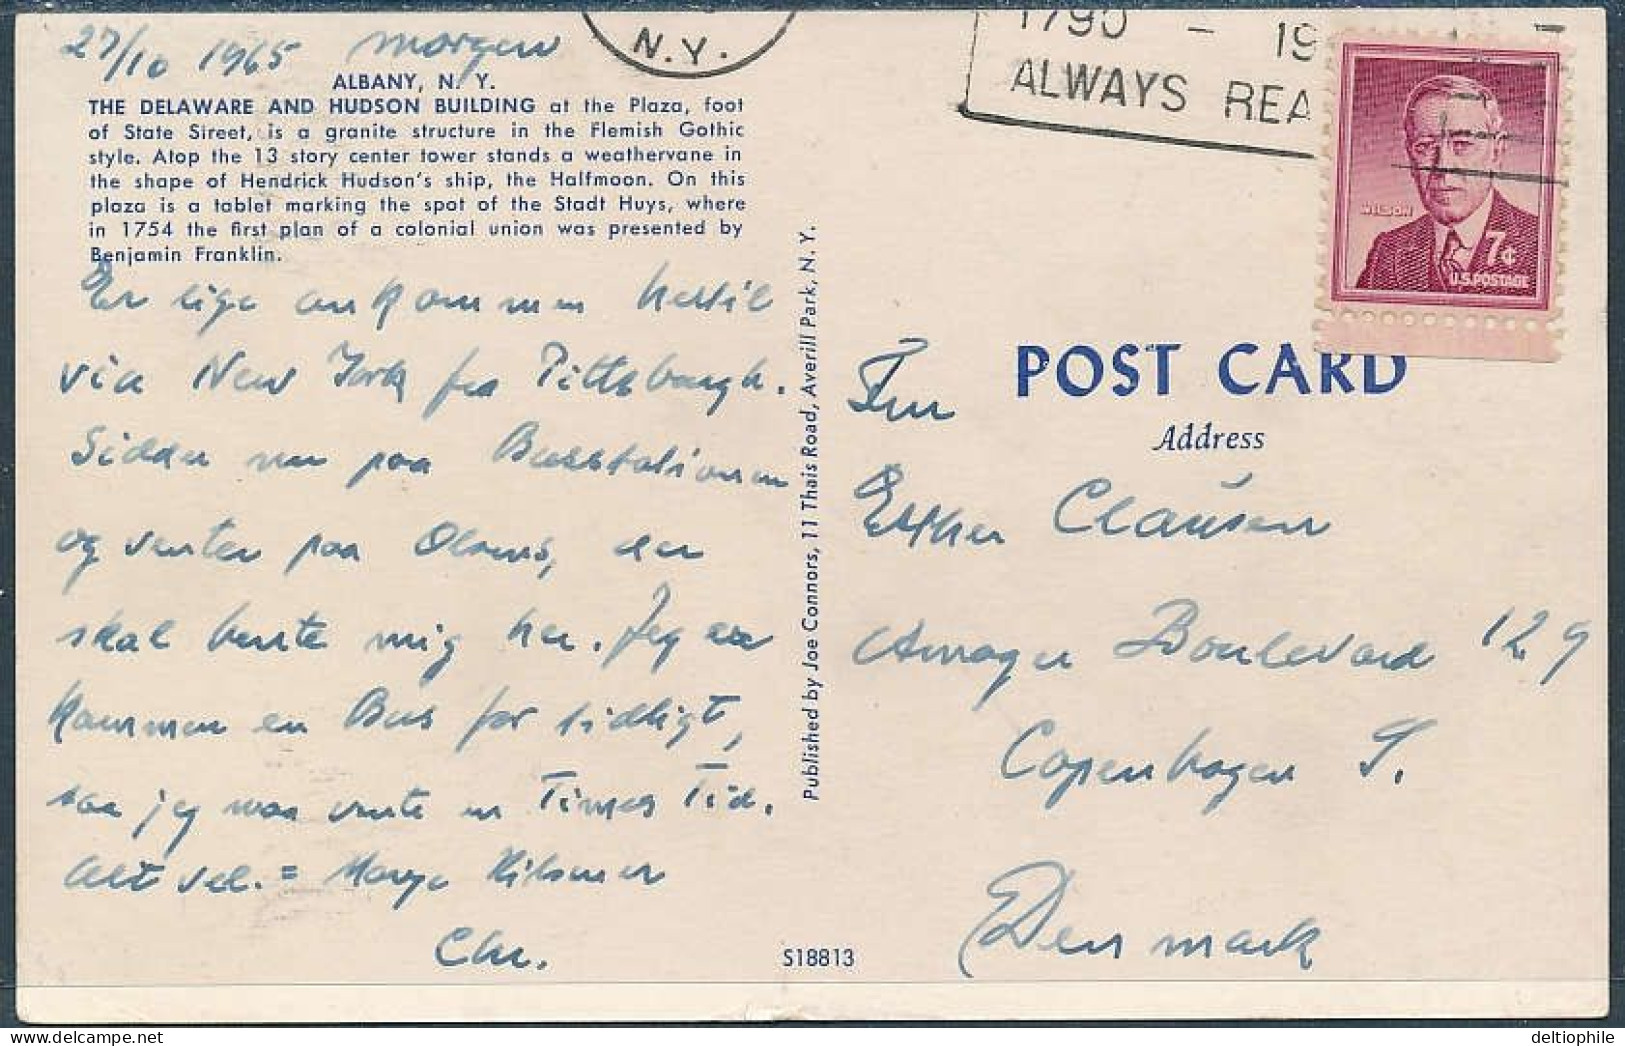 27/10 1965 morgen
ALBANY, N. Y.
THE DELAWARE AND HUDSON BUILDING at the Plaza, foot
of State Street, is a granite structure in the Flemish Gothic
style. Atop the 13 story center tower stands a weathervane in
the shape of Hendrick Hudson's ship, the Halfmoon. On this
plaza is a tablet marking the spot of the Stadt Huys, where
in 1754 the first plan of a colonial union was presented by
Benjamin Franklin.
Er lige ankommen hertil
via New York fra Pittsburgh.
Sidder nu paa Busstationen
og venter paa Olsens, der
skal hente mig her. Jeg er
kommen en Bus for tidligt,
saa jeg maa vente en Times Tid.
Alt vel. = Mange Hilsener
Chr.
Published by Joe Connors, 11 Thais Road, Averill Park, N. Y.
S18813
N.Y.
1795 - 19
ALWAYS REA
WILSON
7¢
U.S. POSTAGE
POST CARD
Address
Fru
Esther Clausen
Amager Boulevard 129
Copenhagen S.
Denmark
deltiophile